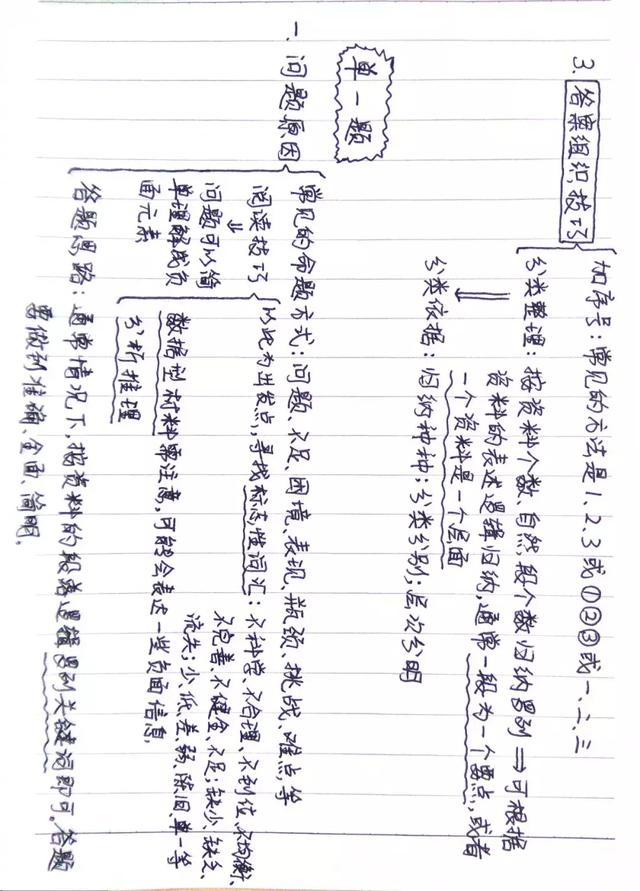 3. 答案组织技巧
加序号：常见的方法是1、2、3或①②③或一、二、三
分类整理：按资料个数、自然段个数归纳罗列⇒可根据
资料的表述逻辑归纳，通常一段为一个要点，或者
一个资料是一个层面
分类依据：归纳种种；分类分别；层次分明
单一题
一、问题原因
常见的命题方式：问题、不足、困境、表现、瓶颈、挑战、难点等
阅读技巧
⇓
问题可以简
单理解成负
面元素
以此为出发点，寻找标志性词汇：不科学、不合理、不到位、不均衡、
不完善、不健全、不足；缺少、缺乏、
流失；少、低、差、弱、陈旧、单一等
数据型材料要注意，可能会表述一些负面信息，
分析推理
答题思路：通常情况下，按资料的段落逻辑罗列关键词即可。答题
要做到准确、全面、简明。